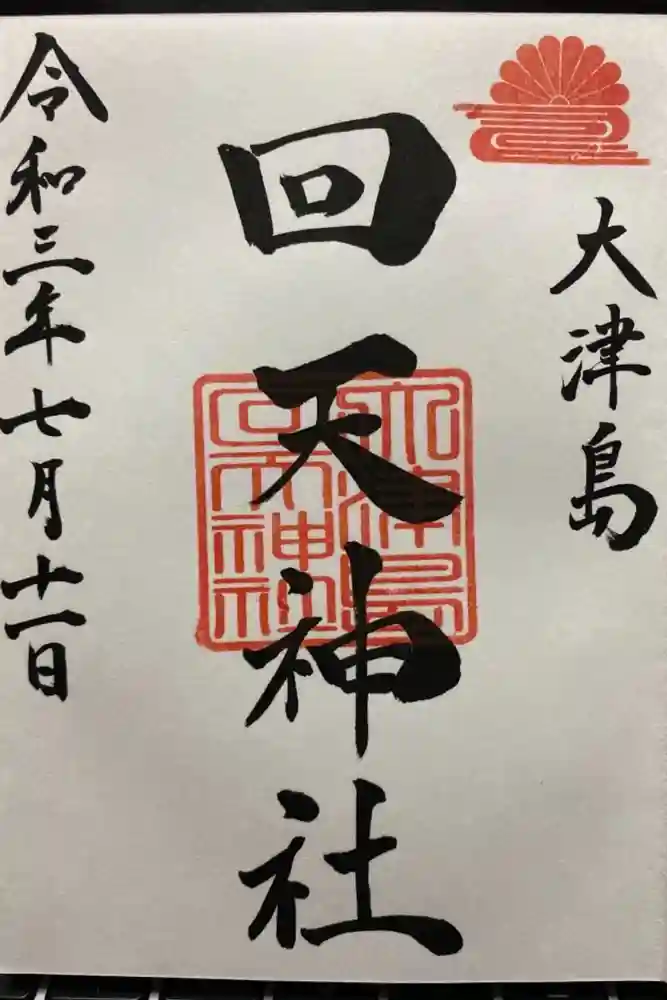 大津島
回天神社
大津島
回天神社
令和三年七月十一日